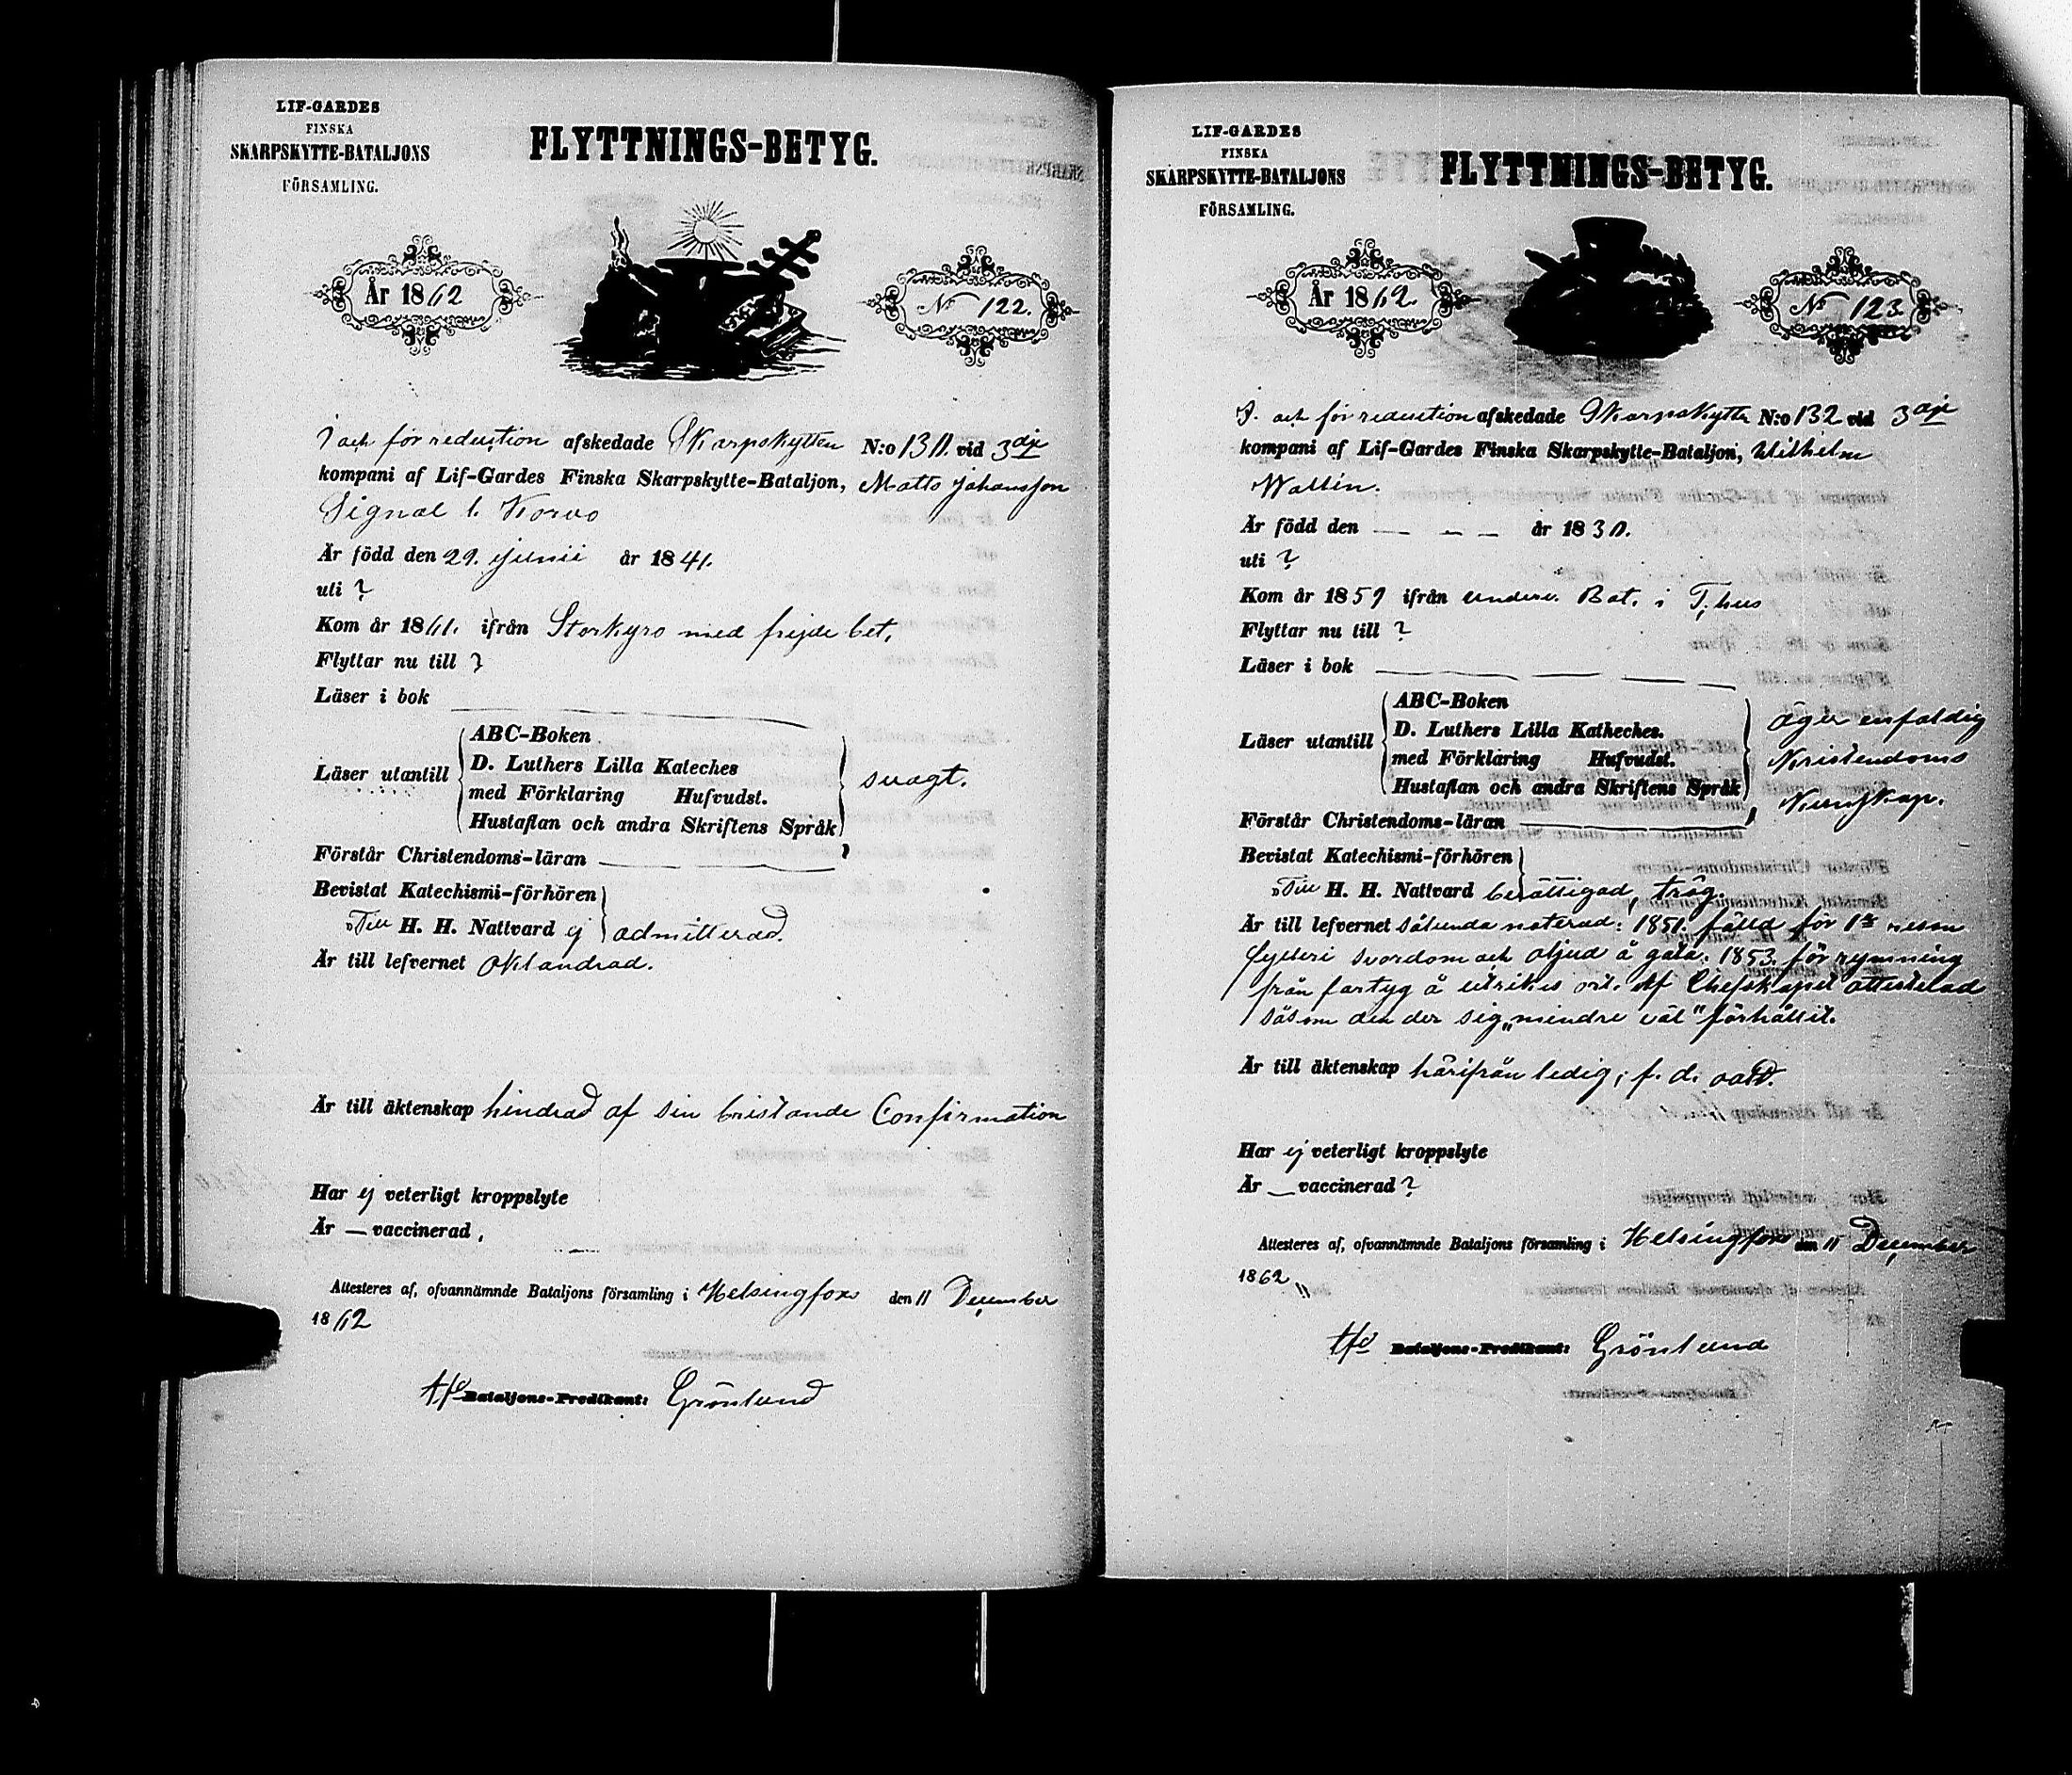 LIF-GARDES
FINSKA
SKARPSKYTTE-BATALJONS
FÖRSAMLING.
FLYTTNINGS-BETYG.
År 1862
No 122.
I och för reduction afskedade Skarpskytten N:o 130. vid 3dje
kompani af Lif-Gardes Finska Skarpskytte-Bataljon, Matts Johansson
Signal l. Korvo
Är född den 29. Junii år 1841.
uti ?
Kom år 1861. ifrån Storkyro med frejde bet.
Flyttar nu till ?
Läser i bok
Läser utantill
ABC-Boken
D. Luthers Lilla Kateches
med Förklaring Hufvudst.
Hustaflan och andra Skriftens Språk
svagt.
Förstår Christendoms-läran
Bevistat Katechismi-förhören
Till H. H. Nattvard ej admitterad.
Är till lefvernet oklandrad.
Är till äktenskap hindrad af sin bristande Confirmation
Har ej veterligt kroppslyte
Är — vaccinerad,
Attesteres af, ofvannämnde Bataljons församling i Helsingfors den 11 December
1862
tfo Bataljons-Predikant: Grönlund
LIF-GARDES
FINSKA
SKARPSKYTTE-BATALJONS
FÖRSAMLING.
FLYTTNINGS-BETYG.
År 1862.
No 123.
I. och för reduction afskedade Skarpskytte N:o 132 vid 3dje
kompani af Lif-Gardes Finska Skarpskytte-Bataljon, Wilhelm
Wallin.
Är född den — — — år 1830.
uti ?
Kom år 1859 ifrån underv. Bat. i T:hus
Flyttar nu till ?
Läser i bok
Läser utantill
ABC-Boken
D. Luthers Lilla Katheches.
med Förklaring Hufvudst.
Hustaflan och andra Skriftens Språk
äger enfaldig
Kristendoms
Kunskap.
Förstår Christendoms-läran
Bevistat Katechismi-förhören
Till H. H. Nattvard berättigad, trög.
Är till lefvernet sålunda noterad: 1851. fälld för 1s resan
fylleri svordom och oljud å gata: 1853. för rymning
från fartyg å utrikes ort. Af Chefskapet attesterad
såsom den der sig „mindre väl" förhållit.
Är till äktenskap härifrån ledig; f. d.
Har ej veterligt kroppslyte
Är — vaccinerad ?
Attesteres af, ofvannämnde Bataljons församling i Helsingfors den 11 December
1862
tfo Bataljons-Predikant: Grönlund